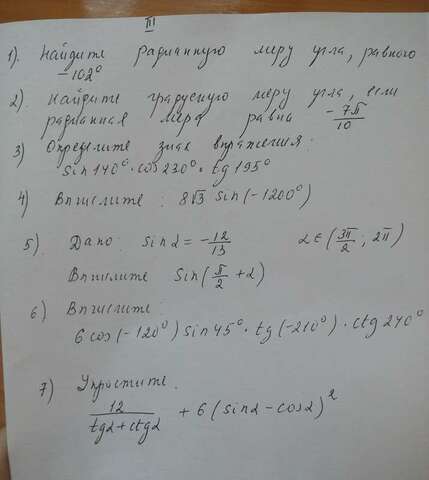 III
1). Найдите радианную меру угла, равного
-102°
2). Найдите градусную меру угла, если
радианная мера равна -7π/10
3) Определите знак выражения.
sin 140° · cos 230° · tg 195°
4) Вычислите: 8√3 sin(-1200°)
5). Дано: sin α = -12/13 α ∈ (3π/2; 2π)
Вычислите sin(π/2 + α)
6) Вычислите:
6 cos(-120°) sin 45° · tg(-210°) · ctg 240°
7) Упростите.
12/(tg α + ctg α) + 6(sin α - cos α)²